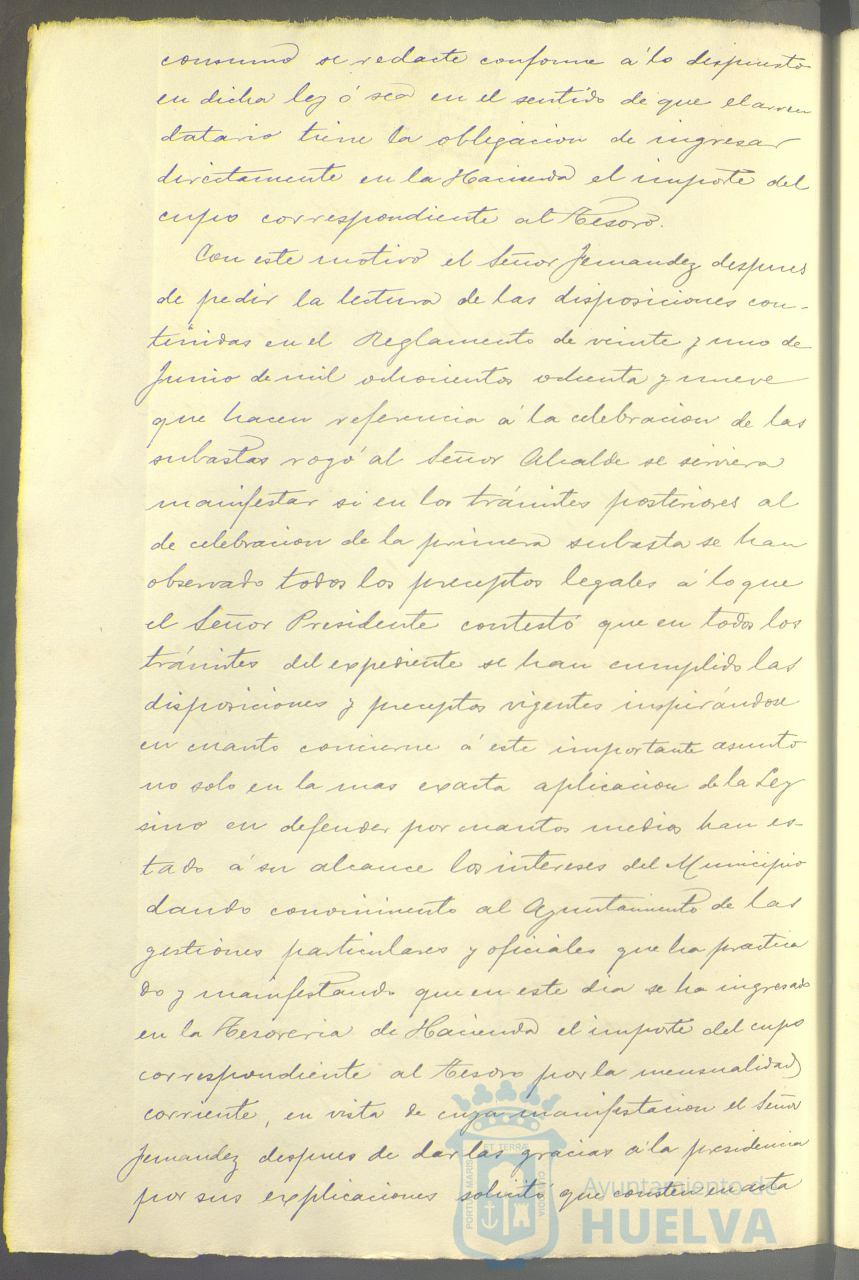 consumo se redacte conforme á lo dispuesto
en dicha ley ó sea en el sentido de que el arren
datario tiene la obligacion de ingresar
directamente en la Hacienda el importe del
cupo correspondiente al Tesoro.
Con este motivo el Señor Fernandez despues
de pedir la lectura de las disposiciones con-
tenidas en el Reglamento de veinte y uno de
Junio de mil ochocientos ochenta y nueve
que hacen referencia á la celebracion de las
subastas rogó al Señor Alcalde se sirviera
manifestar si en los trámites posteriores al
de celebracion de la primera subasta se han
observado todos los preceptos legales á lo que
el Señor Presidente contestó que en todos los
trámites del expediente se han cumplido las
disposiciones y preceptos vigentes inspirándose
en cuanto concierne á este importante asunto
no solo en la mas exacta aplicacion de la Ley
sino en defender por cuantos medios han es-
tado á su alcance los intereses del Municipio
dando conocimiento al Ayuntamiento de las
gestiones particulares y oficiales que ha practica
do y manifestando que en este dia se ha ingresado
en la Tesoreria de Hacienda el importe del cupo
correspondiente al Tesoro por la mensualidad
corriente, en vista de cuya manifestacion el Señor
Fernandez despues de dar las gracias á la presidencia
por sus explicaciones solicitó que consten en acta
PORTUS MARIS ET TERRAE CUSTODIA
Ayuntamiento de
HUELVA